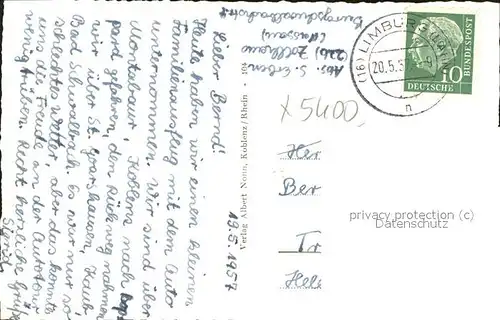 Abs. S. Erben
(22b) Zollhaus
(Nassau)
Burgschwalbacherstr.
Lieber Bernd!
Heute haben wir einen kleinen
Familienausflug mit dem Auto
unternommen. Wir sind über
Montabaur, Koblenz nach Bop-
pard gefahren, den Rückweg nahmen
wir über St. Goarshausen, Kaub
Bad Schwalbach. Es war nur so
schlechtes Wetter, aber das konnte
uns die Freude an der Autotour
wenig trüben. Recht herzliche Grüße
19.5.1957
Verlag Albert Nonn, Koblenz/Rhein
(16) LIMBURG (LAHN)
20.5.5
n
10
DEUTSCHE
BUNDESPOST
X5400
Her
Ber
Tr
Hel
privacy protection (c)
Datenschutz